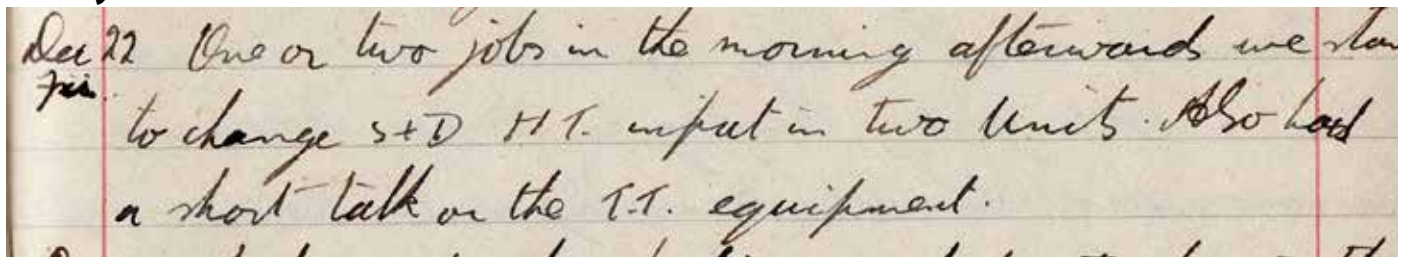 Dec 22 One or two jobs in the morning afterwards we
Fri. to change S+D H.T. input in two Units. Also had
a short talk on the T.T. equipment.